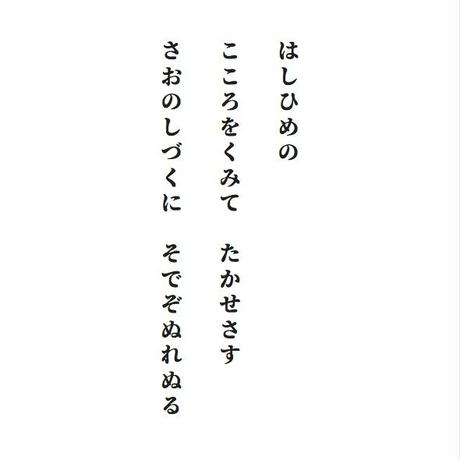 はしひめの
こころをくみて　たかせさす
さおのしづくに　そでぞぬれぬる